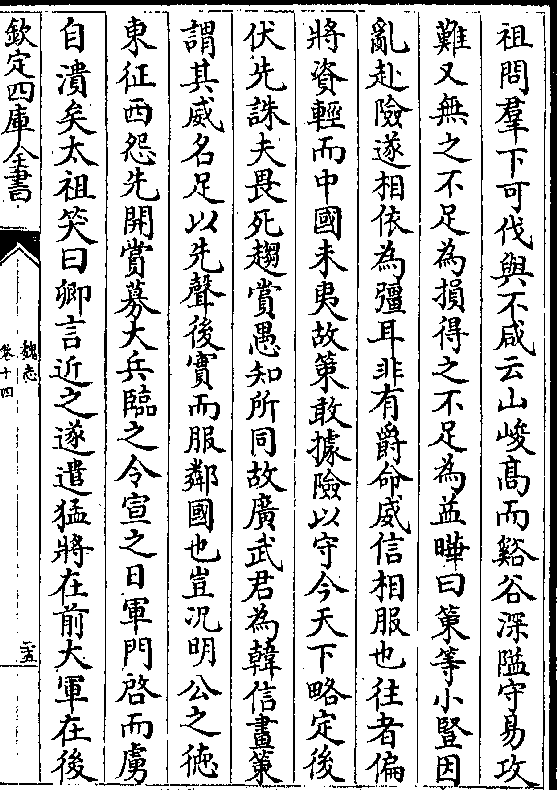 祖問羣下可伐與不咸云山峻髙而谿谷深隘守易攻
難又無之不足為損得之不足為益曄曰策等小豎因
亂赴險遂相依為彊耳非有爵命威信相服也往者偏
將資輕而中國未夷故策敢據險以守今天下略定後
伏先誅夫畏死趨賞愚知所同故廣武君為韓信畫策
謂其威名足以先聲後實而服鄰國也豈况明公之徳
東征西怨先開賞募大兵臨之令宣之日軍門啓而虜
自潰矣太祖笑曰卿言近之遂遣猛將在前大軍在後
欽定四庫全書
魏志
卷十四
二五